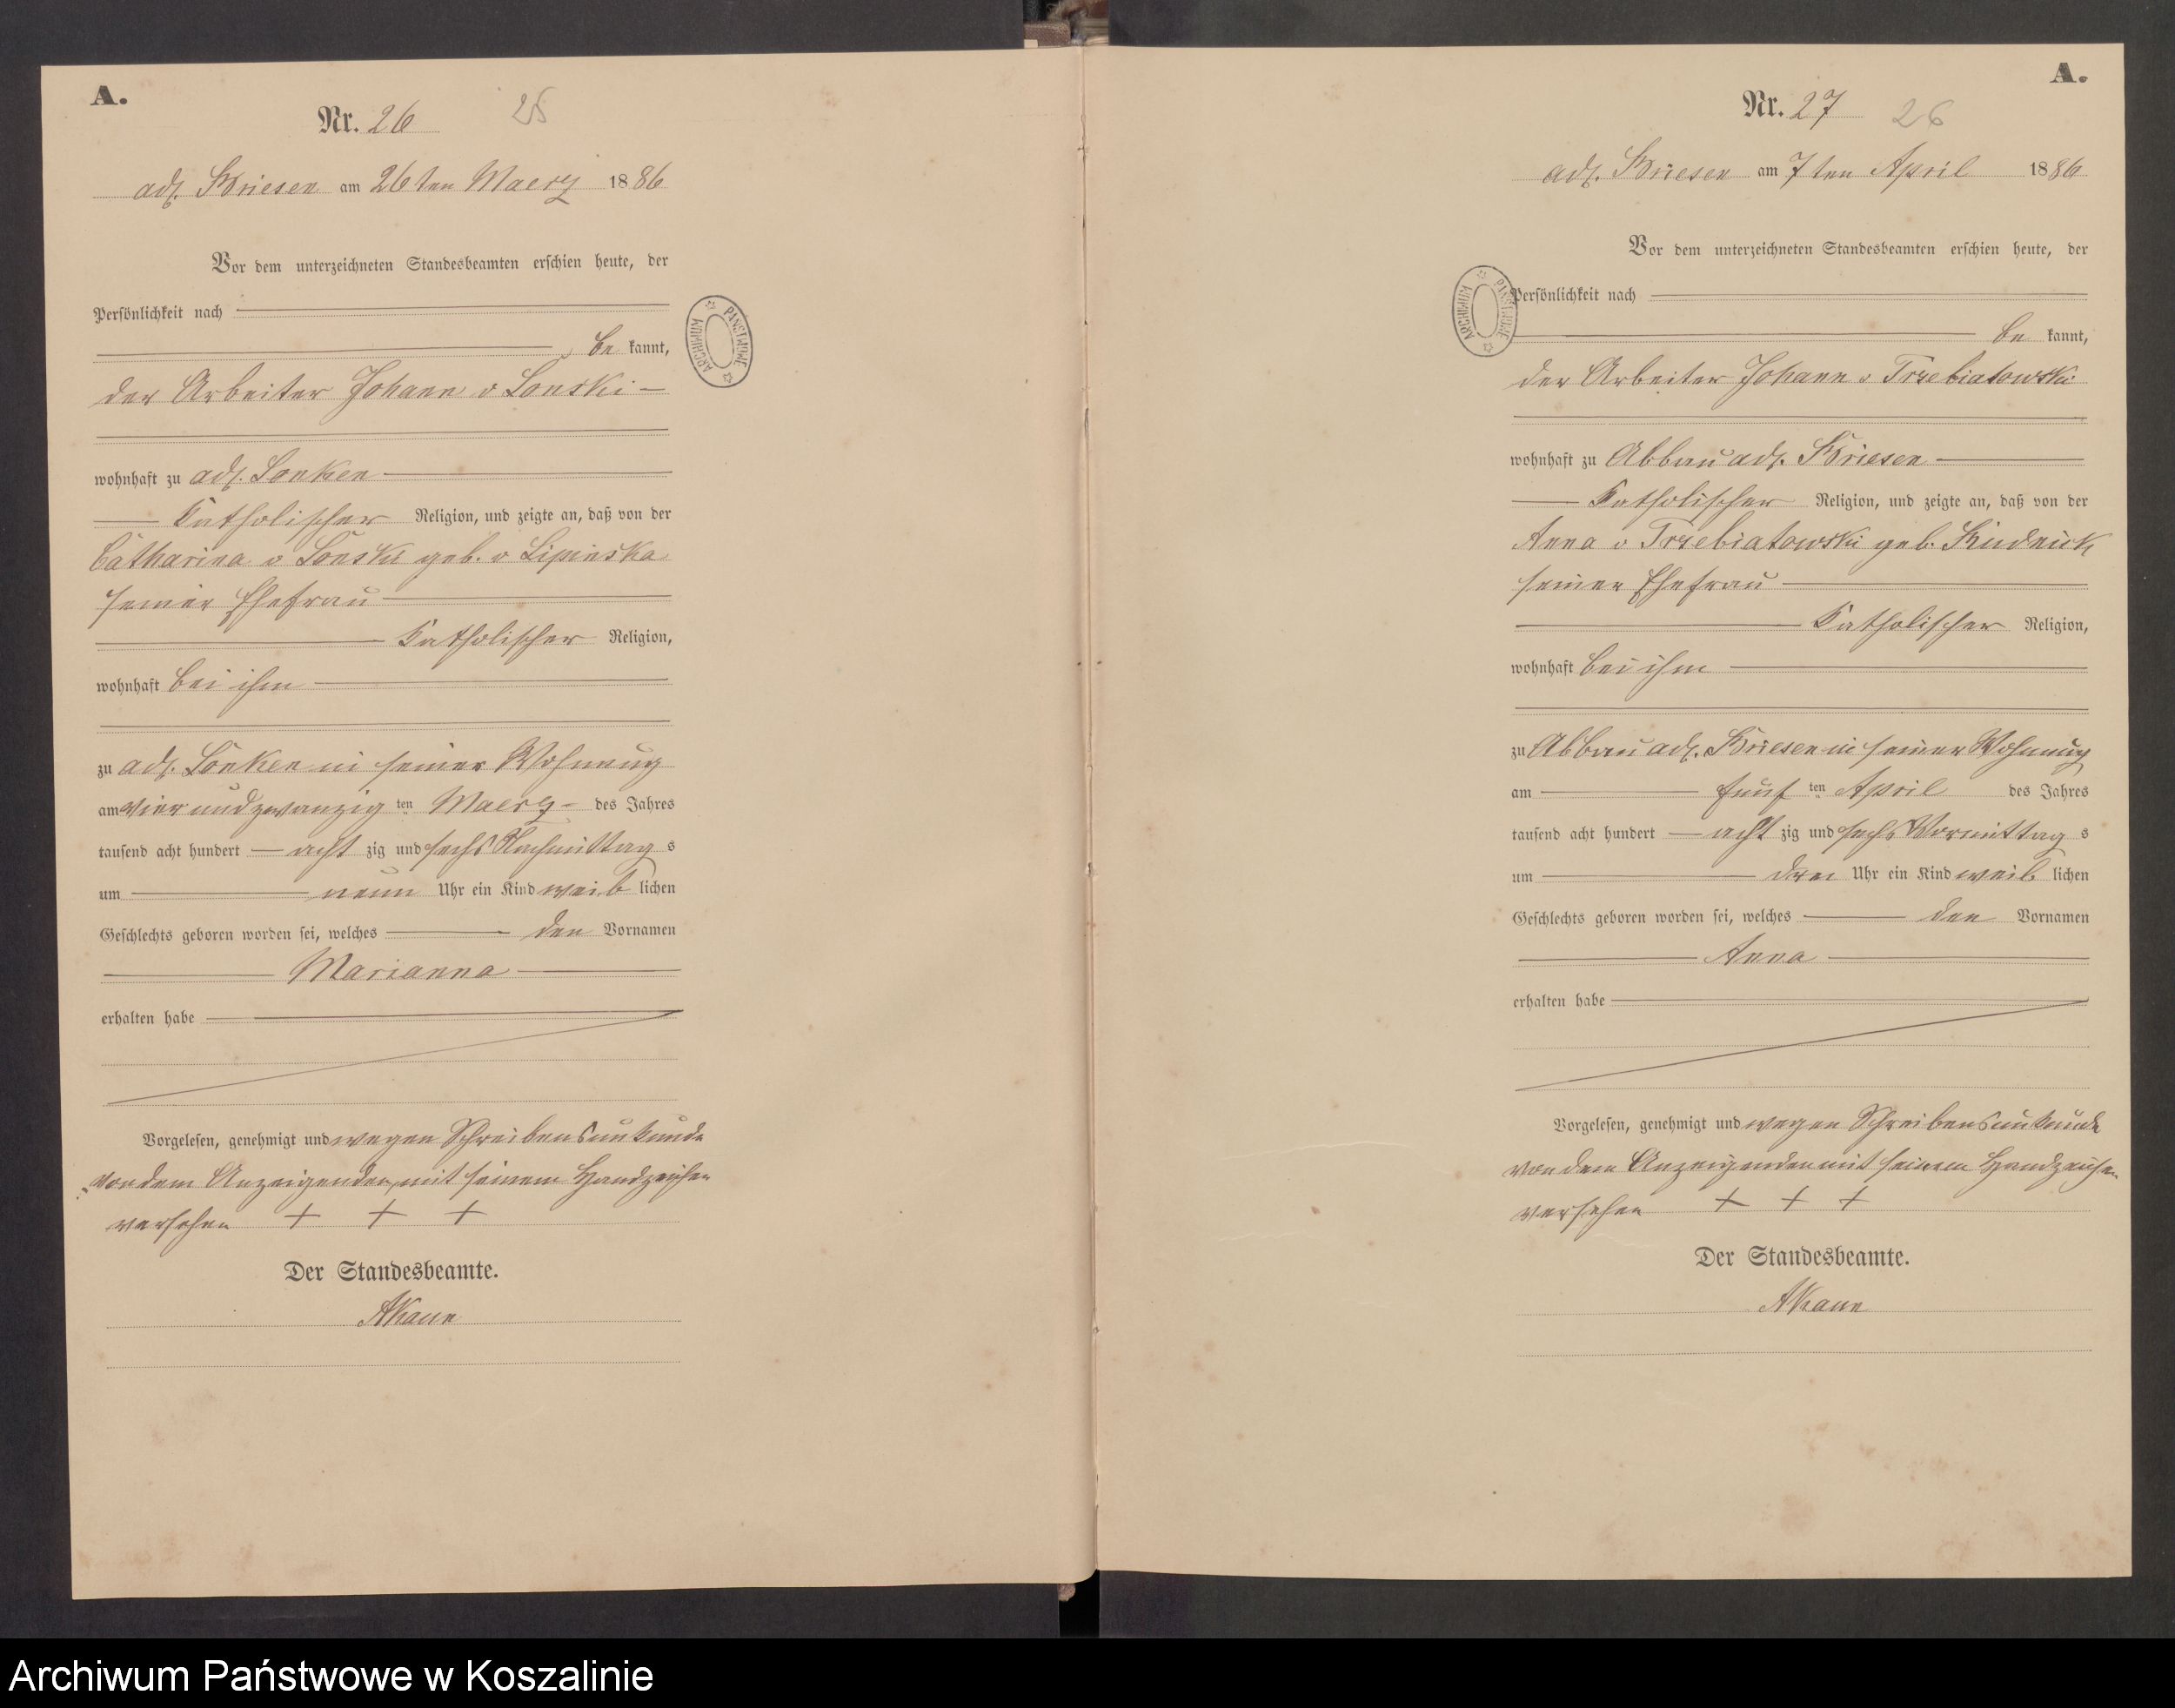 A.
Nr. 26
25
adl. Briesen am 26ten Maerz 1886
Vor dem unterzeichneten Standesbeamten erschien heute, der
Persönlichkeit nach
be kannt,
der Arbeiter Johann v Lonski
wohnhaft zu adl. Lonken
Katholischer Religion, und zeigte an, daß von der
Catharina v Lonski geb. v Lipinska
seiner Ehefrau
Katholischer Religion,
wohnhaft bei ihm
zu adl. Lonken in seiner Wohnung
am vier und zwanzig ten Maerz des Jahres
tausend acht hundert acht zig und sechs Nachmittag s
um neun Uhr ein Kind weib lichen
Geschlechts geboren worden sei, welches den Vornamen
Marianna
erhalten habe
Vorgelesen, genehmigt und wegen Schreibensunkunde
von dem Anzeigenden mit seinem Handzeichen
versehen + + +
Der Standesbeamte.
ARCHIWUM PAŃSTWOWE
A.
Nr. 27
26
adl. Briesen am 7ten April 1886
Vor dem unterzeichneten Standesbeamten erschien heute, der
Persönlichkeit nach
be kannt,
der Arbeiter Johann v Trzebiatowski
wohnhaft zu Abbau adl. Briesen
Katholischer Religion, und zeigte an, daß von der
Anna v Trzebiatowski geb. Rudnick
seiner Ehefrau
Katholischer Religion,
wohnhaft bei ihm
zu Abbau adl. Briesen in seiner Wohnung
am fünf ten April des Jahres
tausend acht hundert acht zig und sechs Vormittag s
um drei Uhr ein Kind weib lichen
Geschlechts geboren worden sei, welches den Vornamen
Anna
erhalten habe
Vorgelesen, genehmigt und wegen Schreibensunkunde
von dem Anzeigenden mit seinem Handzeichen
versehen + + +
Der Standesbeamte.
ARCHIWUM PAŃSTWOWE
Archiwum Państwowe w Koszalinie